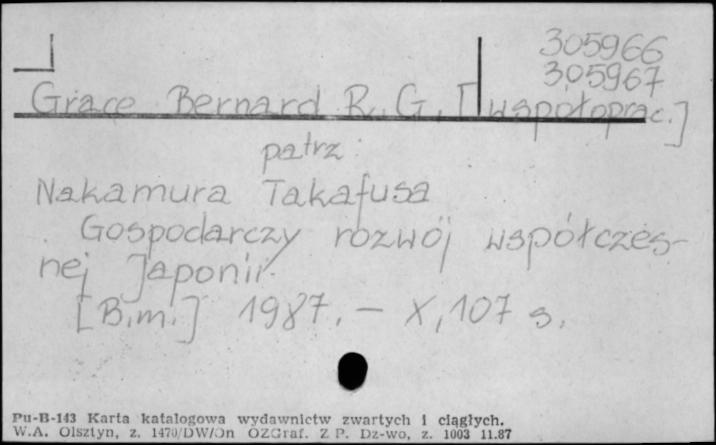 305966
305967
Grace Bernard R. G. [współoprac.]
patrz
Nakamura Takafusa
Gospodarczy rozwój współczes-
nej Japonii.
[B.m.] 1987. – X, 107 s.
Pu-B-143 Karta katalogowa wydawnictw zwartych i ciągłych.
W.A. Olsztyn, z. 1470/DW/Jn OZGraf. Z P. Dz-wo, z. 1003 11.87